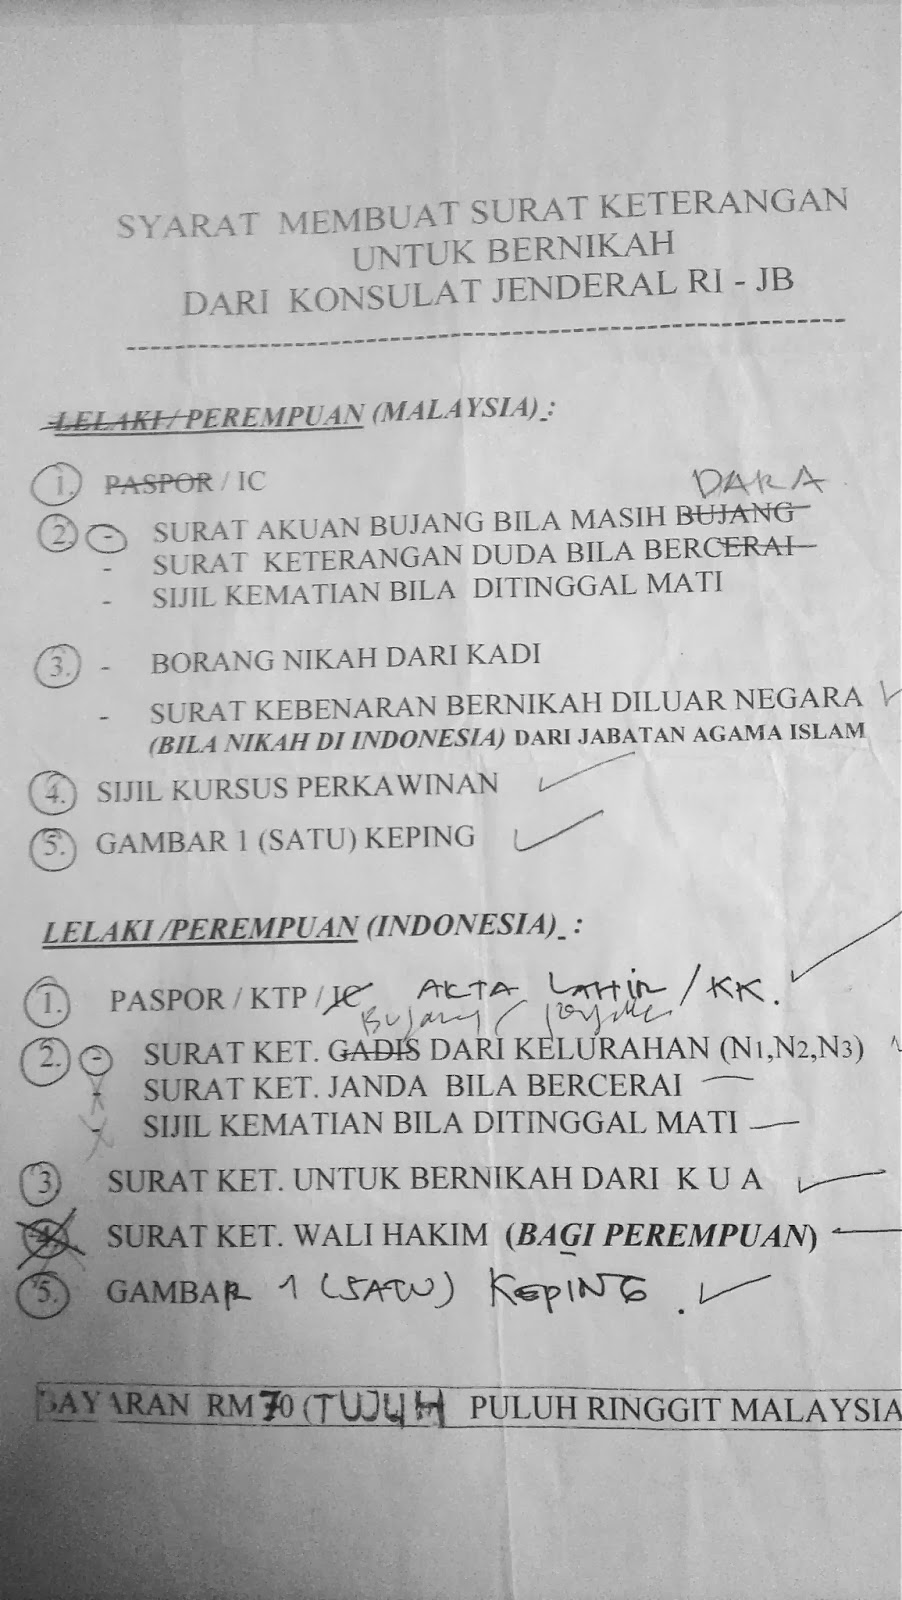 SYARAT MEMBUAT SURAT KETERANGAN
UNTUK BERNIKAH
DARI KONSULAT JENDERAL RI - JB
LELAKI / PEREMPUAN (MALAYSIA) :
1. PASPOR / IC
DARA
2. - SURAT AKUAN BUJANG BILA MASIH BUJANG
- SURAT KETERANGAN DUDA BILA BERCERAI
- SIJIL KEMATIAN BILA DITINGGAL MATI
3. - BORANG NIKAH DARI KADI
- SURAT KEBENARAN BERNIKAH DILUAR NEGARA
(BILA NIKAH DI INDONESIA) DARI JABATAN AGAMA ISLAM
4. SIJIL KURSUS PERKAWINAN
5. GAMBAR 1 (SATU) KEPING
LELAKI /PEREMPUAN (INDONESIA) :
1. PASPOR / KTP / IC AKTA LAHIR / KK.
Bujang /
2. - SURAT KET. GADIS DARI KELURAHAN (N1,N2,N3)
- SURAT KET. JANDA BILA BERCERAI
- SIJIL KEMATIAN BILA DITINGGAL MATI
3 SURAT KET. UNTUK BERNIKAH DARI K U A
4. SURAT KET. WALI HAKIM (BAGI PEREMPUAN)
5. GAMBAR 1 (SATU) KEPING.
BAYARAN RM 70 (TUJUH PULUH RINGGIT MALAYSIA